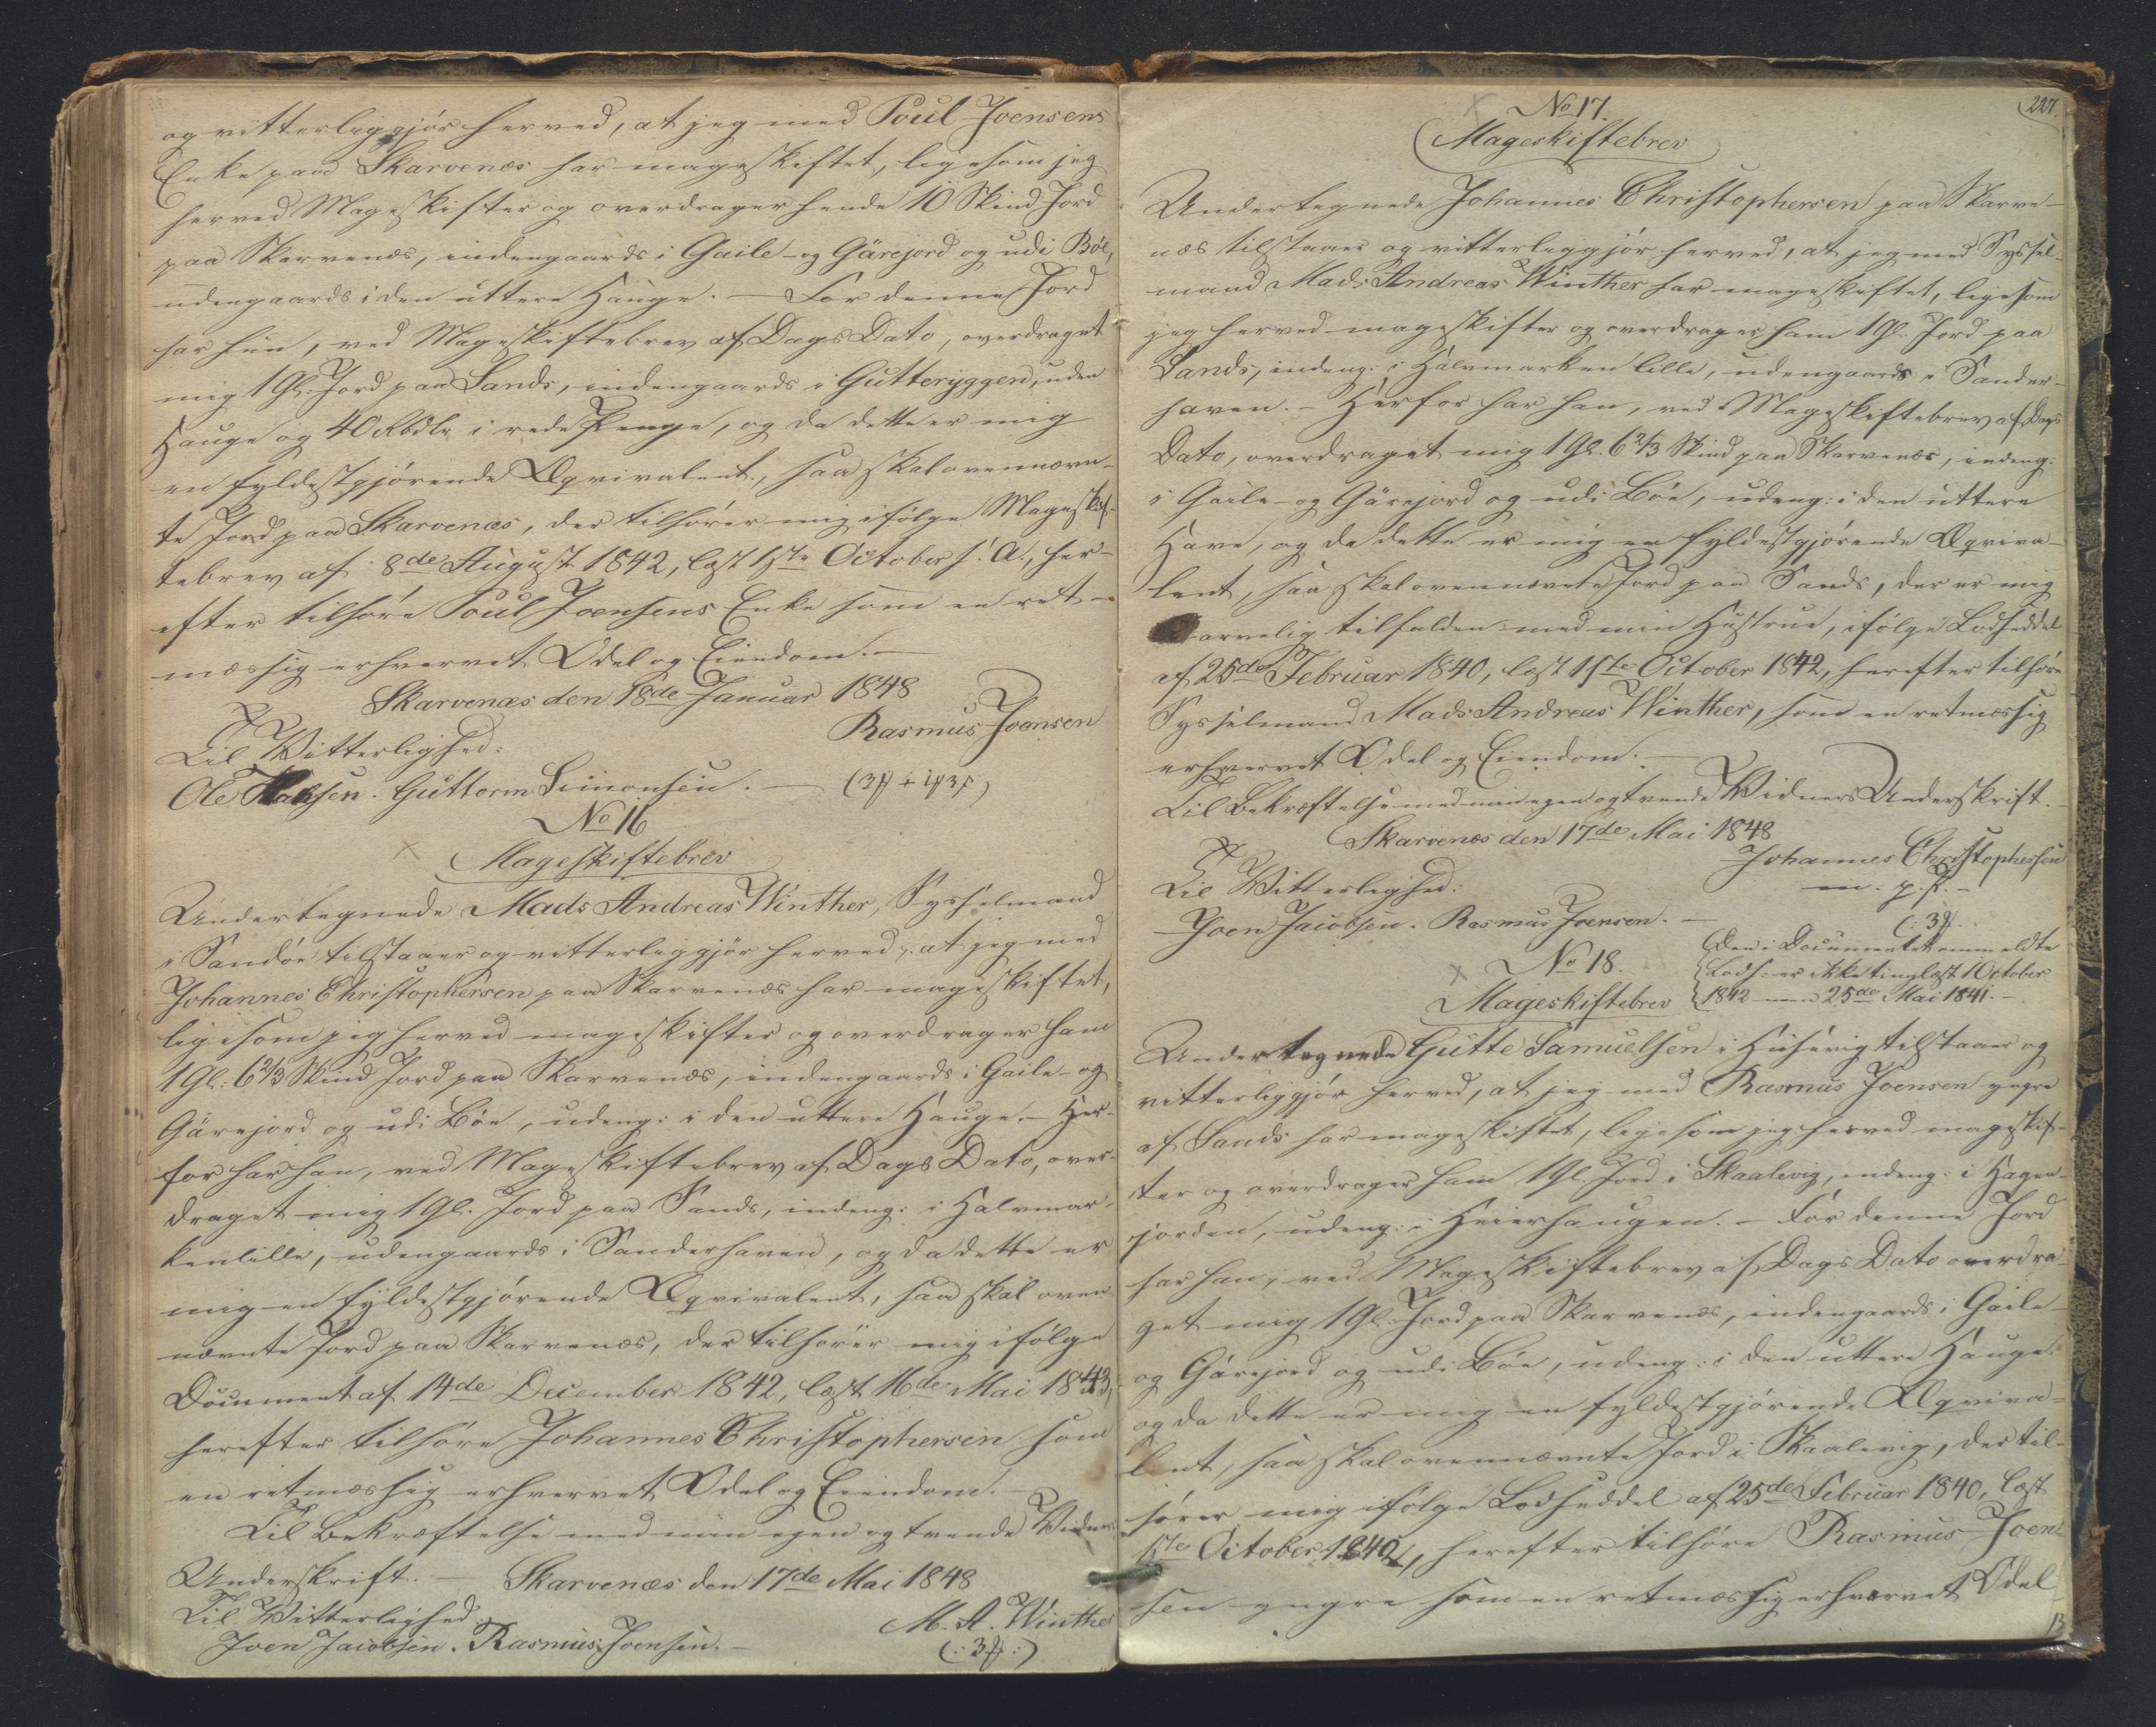 og vitterliggjør herved, at jeg med Poul Joensens
Enke paa Skarvenæs har mageskiftet, ligesom jeg
herved Mageskifter og overdrager hende 10 Skind Jord
paa Skarvenæs, indengaards i Gaile- og Gärejord og udi Böe,
udengaards i den uttere Hauge. — For denne Jord
har hun, ved Mageskiftebrev af Dags Dato, overdraget
mig 1 Gl. Jord paa Sands, indengaards i Gutteryggen, uden
Hauge og 40 Rbdlr i rede Penge, og da dette er mig
en fyldestgjørende Æqvivalent, saa skal ovennævn-
te Jord paa Skarvenæs, der tilhører mig ifølge Mageskif-
tebrev af 8de August 1842, læst 1ste October s. A., her-
efter tilhøre Poul Joensens Enke som en ret-
mæssig erhvervet Odel og Eiendom. —
Skarvenæs den 18de Januar 1848
Rasmus Joensen
Til Vitterlighed:
Ole Guttorm Simonsen. —
No 16
Mageskiftebrev
Undertegnede Mads Andreas Winther, Sysselmand
i Sandöe tilstaaer og vitterliggjør herved, at jeg med
Johannes Christophersen paa Skarvenæs har mageskiftet,
ligesom jeg herved mageskifter og overdrager ham
1 Gl: 6 2/3 Skind Jord paa Skarvenæs, indengaards i Gaile- og
Gärejord og udi Böe, udeng: i den uttere Hauge. — Her-
for har han, ved Mageskiftebrev af Dags Dato, over-
draget mig 1 Gl. Jord paa Sands, indeng: i Halvmar-
kenlille, udengaards i Sanderhaven, og da dette er
mig en fyldestgjørende Æqvivalent, saa skal oven-
nævnte Jord paa Skarvenæs, der tilhører mig ifølge
Document af 14de December 1842, læst 16de Mai 1843,
herefter tilhøre Johannes Christophersen som
en retmæssig erhvervet Odel og Eiendom. —
Til Bekræftelse med min egen og tvende Vidners
Underskrift. — Skarvenæs den 17de Mai 1848
Til Vitterlighed
M. A. Winther
Joen Jacobsen. Rasmus Joensen. —
(: 3 ß :)
227.
No 17.
Mageskiftebrev
Undertegnede Johannes Christophersen paa Skarve-
næs tilstaaer og vitterliggjør herved, at jeg med Syssel-
mand Mads Andreas Winther har mageskiftet, ligesom
jeg herved mageskifter og overdrager ham 1 Gl. Jord paa
Sands, indeng: i Halvmarken lille, udengaards i Sander-
haven. — Herfor har han, ved Mageskiftebrev af Dags
Dato, overdraget mig 1 Gl. 6 2/3 Skind paa Skarvenæs, indeng:
i Gaile- og Gärejord og udi Böe, udeng: i den uttere
Have, og da dette er mig en fyldestgjørende Æqviva-
lent, saa skal ovennævnte Jord paa Sands, der er mig
arvelig tilfalden med min Hustrue, ifølge Lodseddel
af 25de Februar 1840, læst 1ste October 1842, herefter tilhøre
Sysselmand Mads Andreas Winther, som en retmæssig
erhvervet Odel og Eiendom. —
Til Bekræftelse med min egen og tvende Vidners Underskrift.
Skarvenæs den 17de Mai 1848
Johannes Christophersen
m. p. P. —
Til Vitterlighed:
Joen Jacobsen. Rasmus Joensen. —
(: 3 ß
No 18.
Mageskiftebrev
Den i Documentet ommeldte
Lods: er ikke tinglæst 1 October
1842 men 25de Mai 1841. —
Undertegnede Gutte Samuelsen i Husevig tilstaaer og
vitterliggjør herved, at jeg med Rasmus Joensen yngre
af Sands har mageskiftet, ligesom jeg herved mageskif-
ter og overdrager ham 1 Gl. Jord i Skaalevig, indeng: i Hagen-
jorden, udeng: i Heierhaugen. — For denne Jord
har han, ved Mageskiftebrev af Dags Dato overdra-
get mig 1 Gl. Jord paa Skarvenæs, indengaards i Gaile-
og Gärejord og udi Böe, udeng: i den uttere Hauge
og da dette er mig en fyldestgjørende Æqviva-
lent, saa skal ovennævnte Jord i Skaalevig, der til-
hører mig ifølge Lodseddel af 25de Februar 1840, læst
1ste October 1842, herefter tilhøre Rasmus Joen-
sen yngre som en retmæssig erhvervet Odel